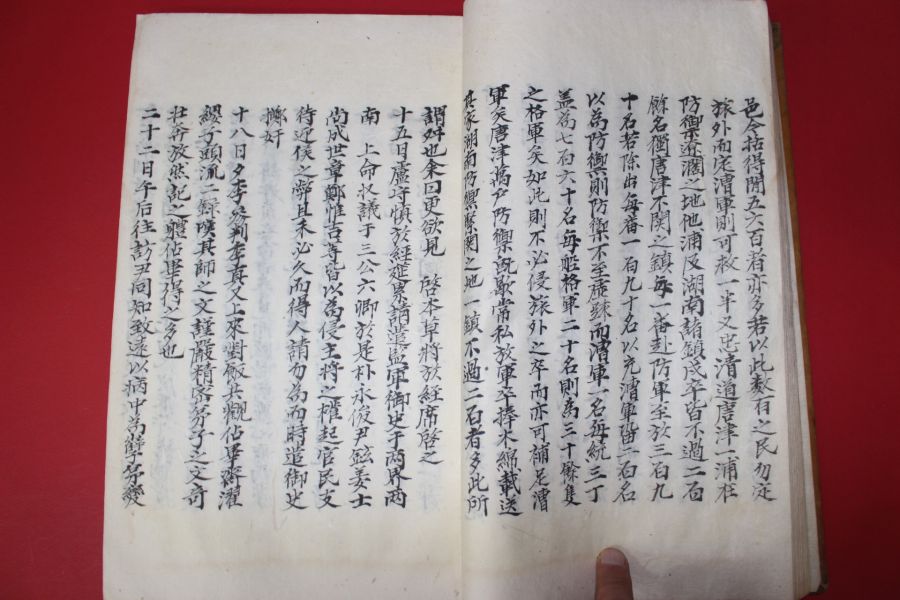 邑令括得閑五六百者亦多若以此数百之民勿定
旅外而定漕軍則可救一半又忠清道唐津一浦在
防禦遼濶之地他浦及湖南諸鎮戍卒皆不過二百
餘名衝唐津不関之鎮每一番赴防軍至於三百九
十名若除出每番一百九十名以充漕軍留二百名
以為防禦則防禦不至虛踈而漕軍一名每統三丁
盖為七百六十名每船格軍二十名則為三十餘隻
之格軍矣如此則不必侵旅外之卒而亦可補足漕
軍矣唐津萬户防禦旣歇常私放軍卒捧木綿載送
其家湖南防禦緊関之地一鎮不過二百者多此所
謂舛也余曰更欲見 啓本草將於經席啓之
十五日盧守慎於經筵累請遣監軍御史于兩界兩
南 上命収議于三公六卿於是朴永俊尹鉉姜士
尚成世章鄭惟吉等皆以為侵主將之權起官民支
待迎侯之弊且未必久而得人請勿為而時遣御史
擲奸
十八日夕李 判李真又上來對飯共觀佔畢齋濯
纓子頭流二録嘆其師之文謹嚴精密弟子之文奇
壮奔放然記之體佔畢得之多也
二十二日午后往訪尹同知致遠以病中為孽 發